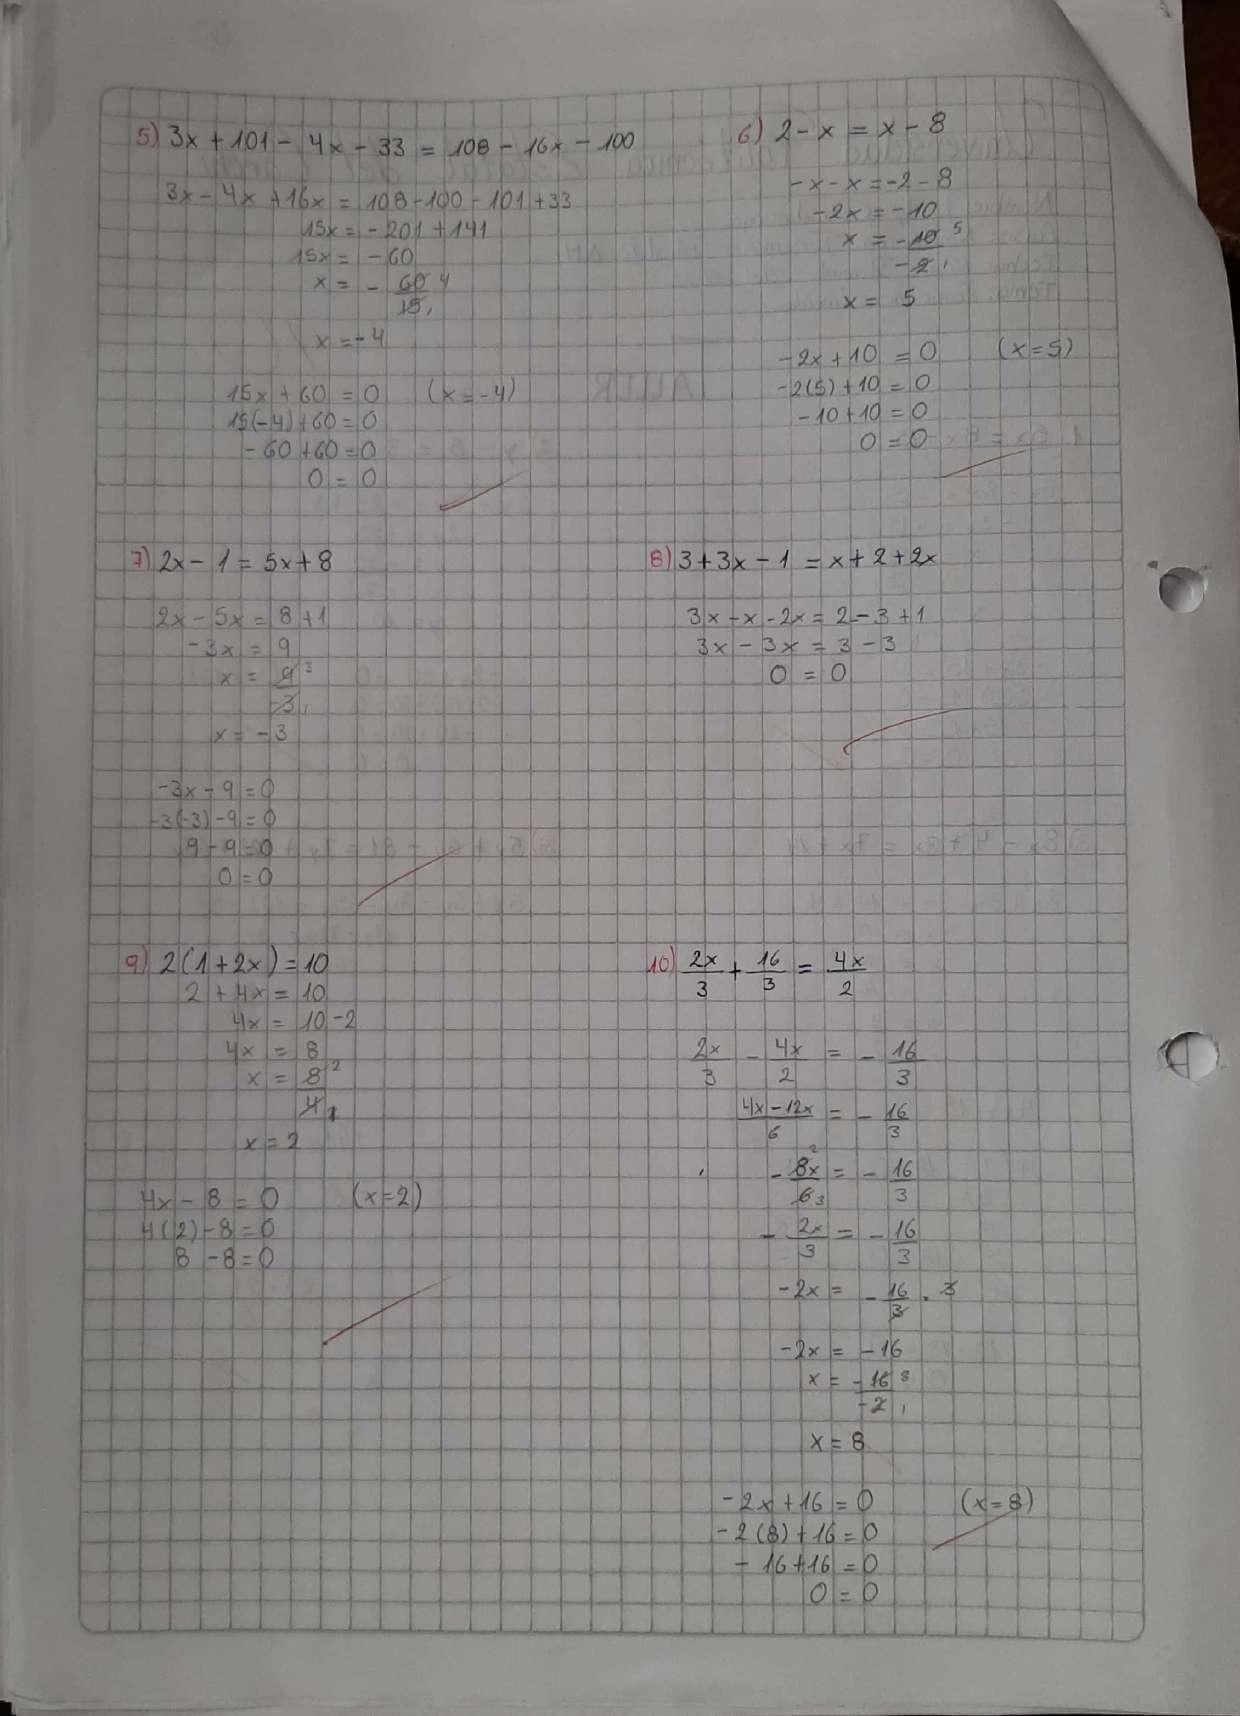 5) 3x + 101 - 4x - 33 = 108 - 16x - 100
3x - 4x + 16x = 108 - 100 - 101 + 33
15x = - 201 + 141
15x = - 60
x = - 60/15 4 1
x = - 4
15x + 60 = 0 (x = -4)
15(-4) + 60 = 0
- 60 + 60 = 0
0 = 0
6) 2 - x = x - 8
- x - x = - 2 - 8
- 2x = - 10
x = -10/-2 5 1
x = 5
- 2x + 10 = 0 (x = 5)
- 2(5) + 10 = 0
- 10 + 10 = 0
0 = 0
7) 2x - 1 = 5x + 8
2x - 5x = 8 + 1
- 3x = 9
x = 9/-3 3 1
x = - 3
- 3x - 9 = 0
-3(-3) - 9 = 0
9 - 9 = 0
0 = 0
8) 3 + 3x - 1 = x + 2 + 2x
3x - x - 2x = 2 - 3 + 1
3x - 3x = 3 - 3
0 = 0
9) 2(1 + 2x) = 10
2 + 4x = 10
4x = 10 - 2
4x = 8
x = 8/4 2 1
x = 2
4x - 8 = 0 (x = 2)
4(2) - 8 = 0
8 - 8 = 0
10) 2x/3 + 16/3 = 4x/2
2x/3 - 4x/2 = - 16/3
4x - 12x/6 = - 16/3
- 8x/6 2 3 = - 16/3
- 2x/3 = - 16/3
- 2x = - 16/3 . 3
- 2x = - 16
x = -16/-2 8 1
x = 8
- 2x + 16 = 0 (x = 8)
- 2(8) + 16 = 0
- 16 + 16 = 0
0 = 0